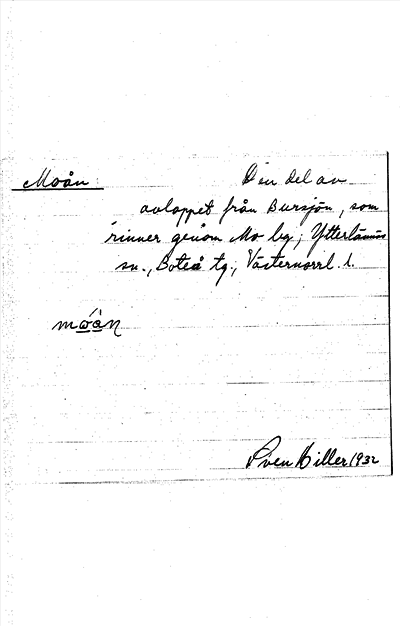 Moån: Den del av
avloppet från Bursjön, som
rinner genom Mo by; Ytterlännäs
sn., Boteå tg., Västernorrl. l.
Sven Hiller 1932